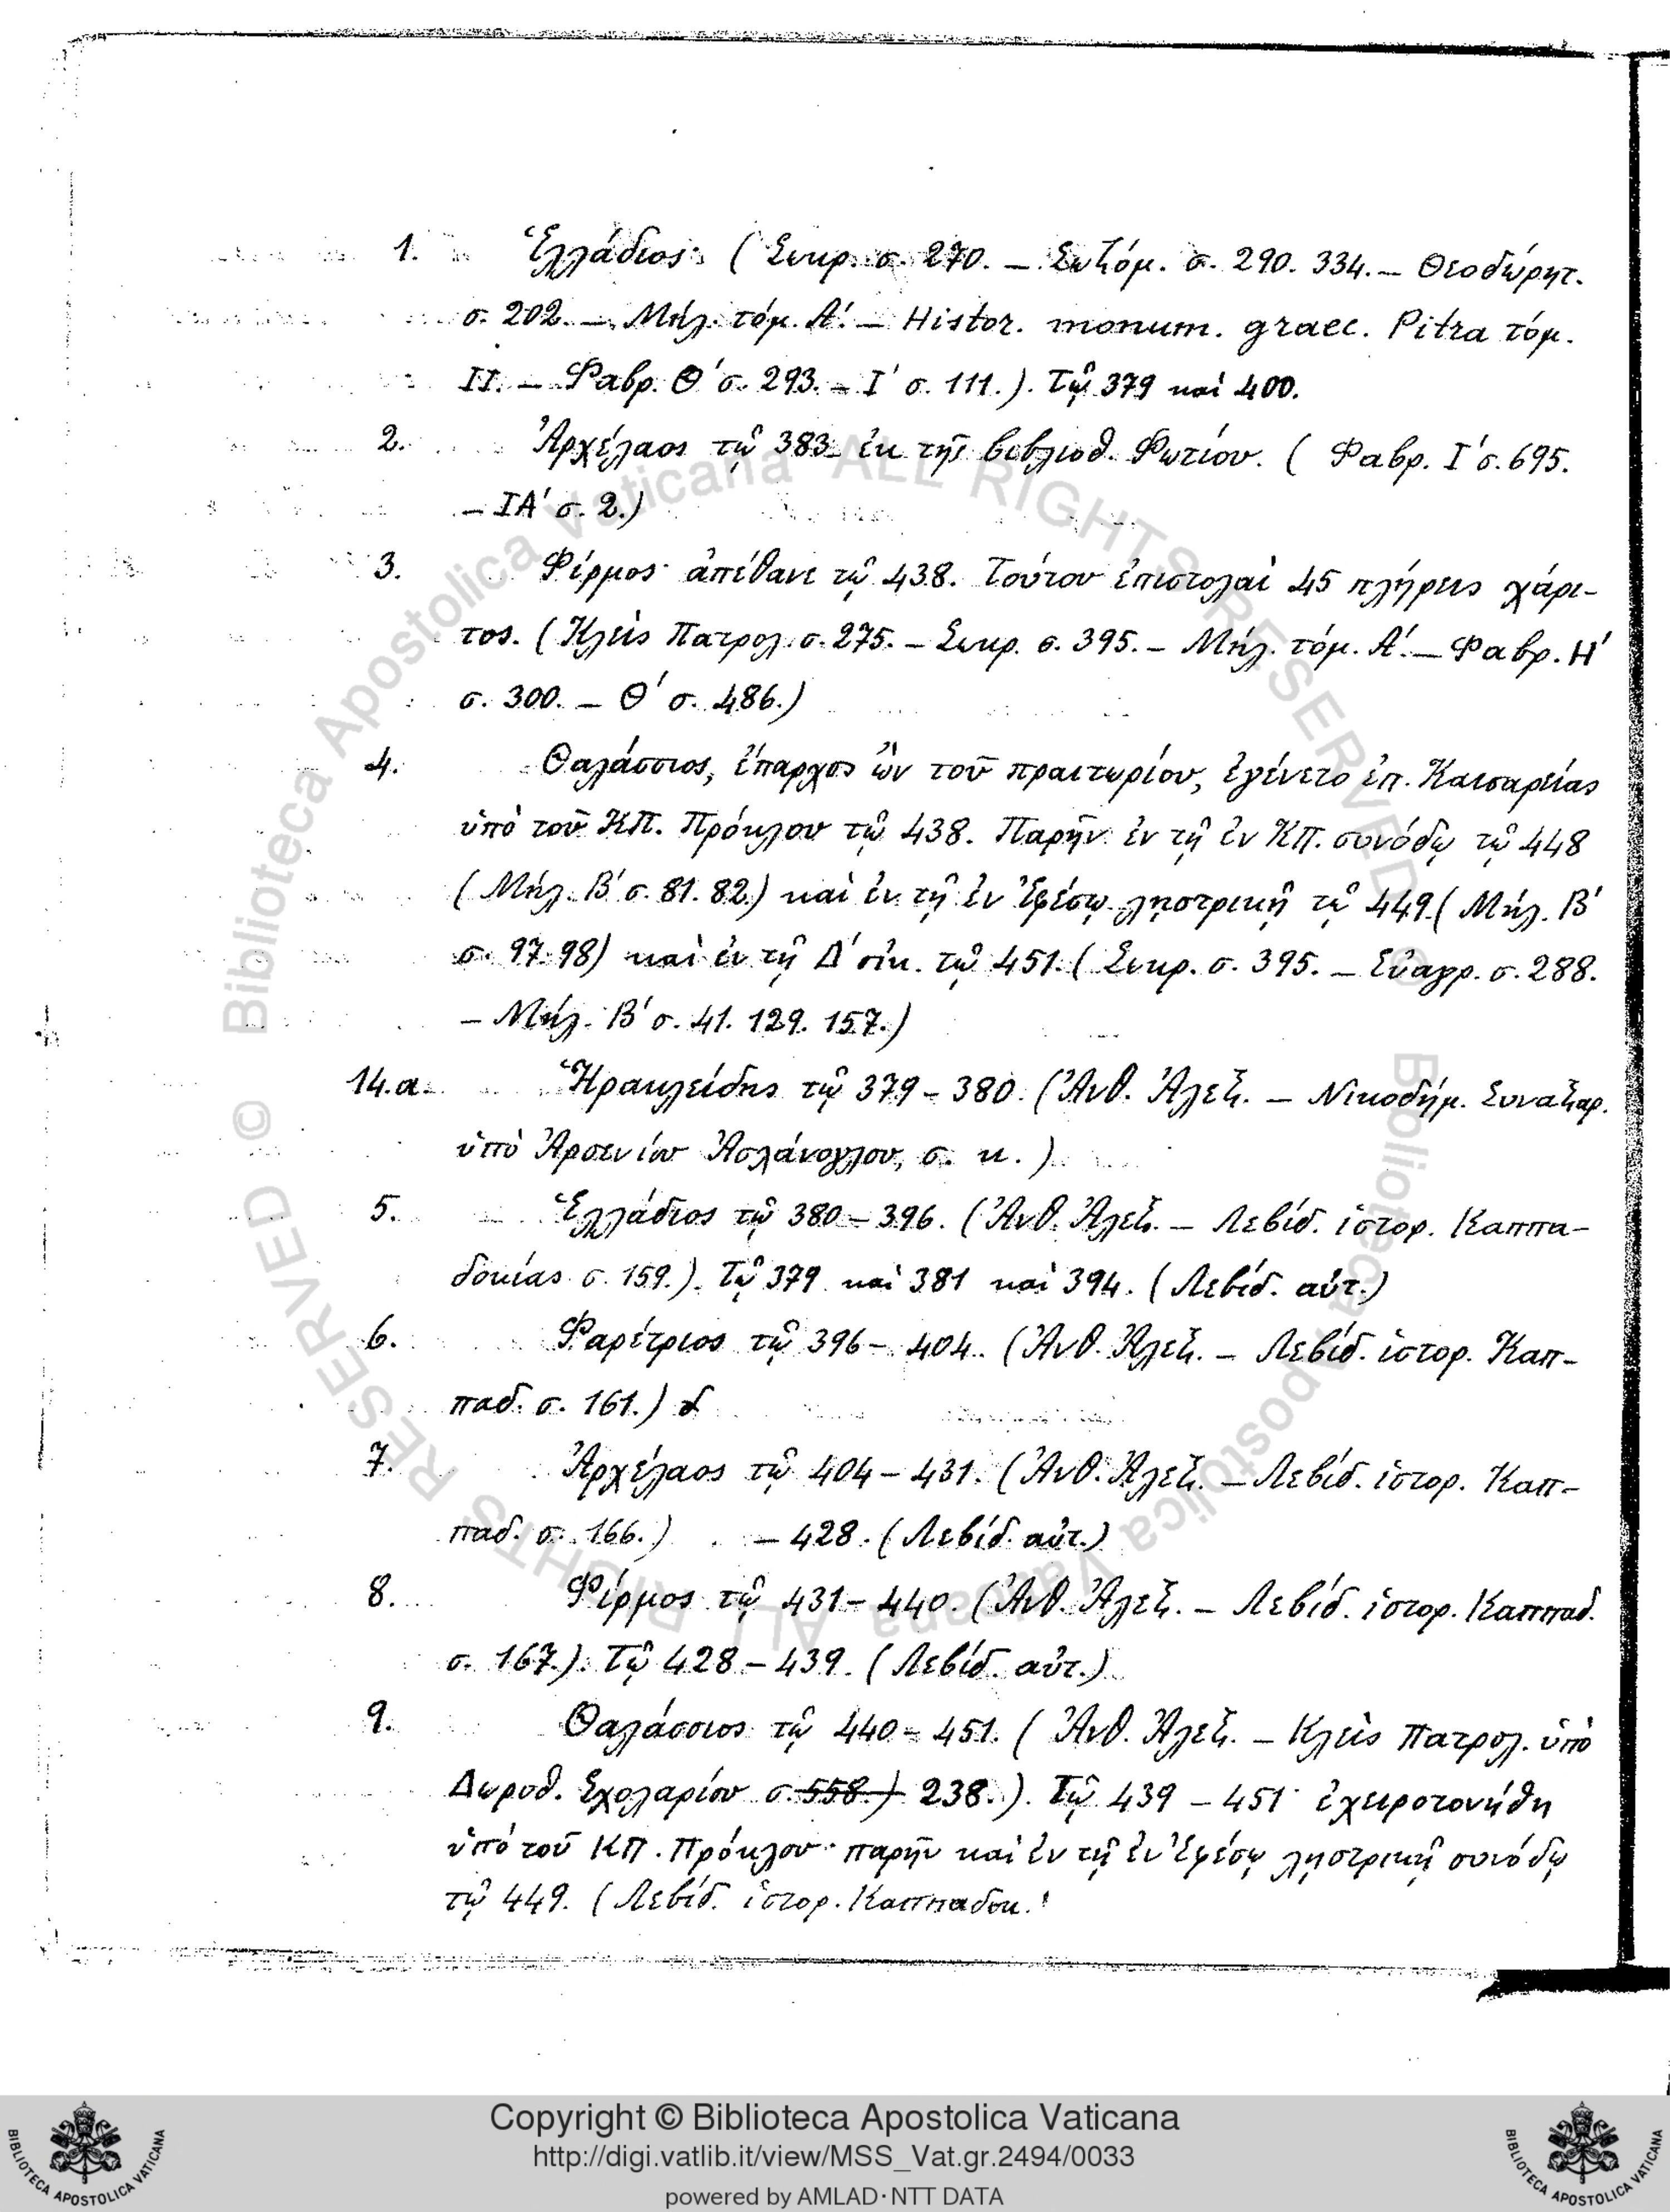 1. Ἑλλάδιος· (Σωκρ. σ. 270. – Σωζόμ. σ. 290. 334. – Θεοδώρητ.
σ. 202. – Μήλ. τόμ. Α΄. – Histor. monum. graec. Pitra τόμ.
II. – Φαβρ. Θ΄ σ. 293. – Ι΄ σ. 111.). Τῷ 379 καὶ 400.
2. Ἀρχέλαος τῷ 383 ἐκ τῆς βιβλιοθ. Φωτίου. (Φαβρ. Ι΄ σ. 695.
– ΙΑ΄ σ. 2.)
3. Φίρμος· ἀπέθανε τῷ 438. Τούτου ἐπιστολαὶ 45 πλήρεις χάρι-
τος. (Κλεὶς Πατρολ. σ. 275. – Σωκρ. σ. 395. – Μήλ. τόμ. Α΄. – Φαβρ. Η΄
σ. 300. – Θ΄ σ. 486.)
4. Θαλάσσιος, ἔπαρχος ὢν τοῦ πραιτωρίου, ἐγένετο ἐπ. Καισαρείας
ὑπὸ τοῦ ΚΠ. Πρόκλου τῷ 438. Παρῆν ἐν τῇ ἐν ΚΠ. συνόδῳ τῷ 448
(Μήλ. Β΄ σ. 81. 82.) καὶ ἐν τῇ ἐν Ἐφέσῳ λῃστρικῇ τῷ 449. (Μήλ. Β΄
σ. 97. 98) καὶ ἐν τῇ Δ΄ οἰκ. τῷ 451. (Σωκρ. σ. 395. – Εὐαγρ. σ. 288.
– Μήλ. Β΄ σ. 41. 129. 157.)
14.α. Ἡρακλείδης τῷ 379 – 380. (Ἀνθ. Ἀλεξ. – Νικοδήμ. Συναξαρ.
ὑπὸ Ἀρσενίου Ἀσλάνογλου, σ. κ.)
5. Ἑλλάδιος τῷ 380 – 396. (Ἀνθ. Ἀλεξ. – Λεβίδ. ἱστορ. Καππα-
δοκίας σ. 159.). Τῷ 379 καὶ 381 καὶ 394. (Λεβίδ. αὐτ.)
6. Φαρέτριος τῷ 396 – 404. (Ἀνθ. Ἀλεξ. – Λεβίδ. ἱστορ. Καπ-
παδ. σ. 161.)
7. Ἀρχέλαος τῷ 404 – 431. (Ἀνθ. Ἀλεξ. – Λεβίδ. ἱστορ. Καπ-
παδ. σ. 166.) – 428. (Λεβίδ. αὐτ.)
8. Φίρμος τῷ 431 – 440. (Ἀνθ. Ἀλεξ. – Λεβίδ. ἱστορ. Καππαδ.
σ. 167.). Τῷ 428 – 439. (Λεβίδ. αὐτ.)
9. Θαλάσσιος τῷ 440 – 451. (Ἀνθ. Ἀλεξ. – Κλεὶς Πατρολ. ὑπὸ
Δωροθ. Σχολαρίου σ. 558.) 238.). Τῷ 439 – 451· ἐχειροτονήθη
ὑπὸ τοῦ ΚΠ. Πρόκλου· παρῆν καὶ ἐν τῇ ἐν Ἐφέσῳ λῃστρικῇ συνόδῳ
τῷ 449. (Λεβίδ. ἱστορ. Καππαδοκ.
© Biblioteca Apostolica Vaticana ALL RIGHTS RESERVED
© Biblioteca Apostolica Vaticana ALL RIGHTS RESERVED
Copyright © Biblioteca Apostolica Vaticana
http://digi.vatlib.it/view/MSS_Vat.gr.2494/0033
powered by AMLAD·NTT DATA
BIBLIOTECA APOSTOLICA VATICANA
BIBLIOTECA APOSTOLICA VATICANA